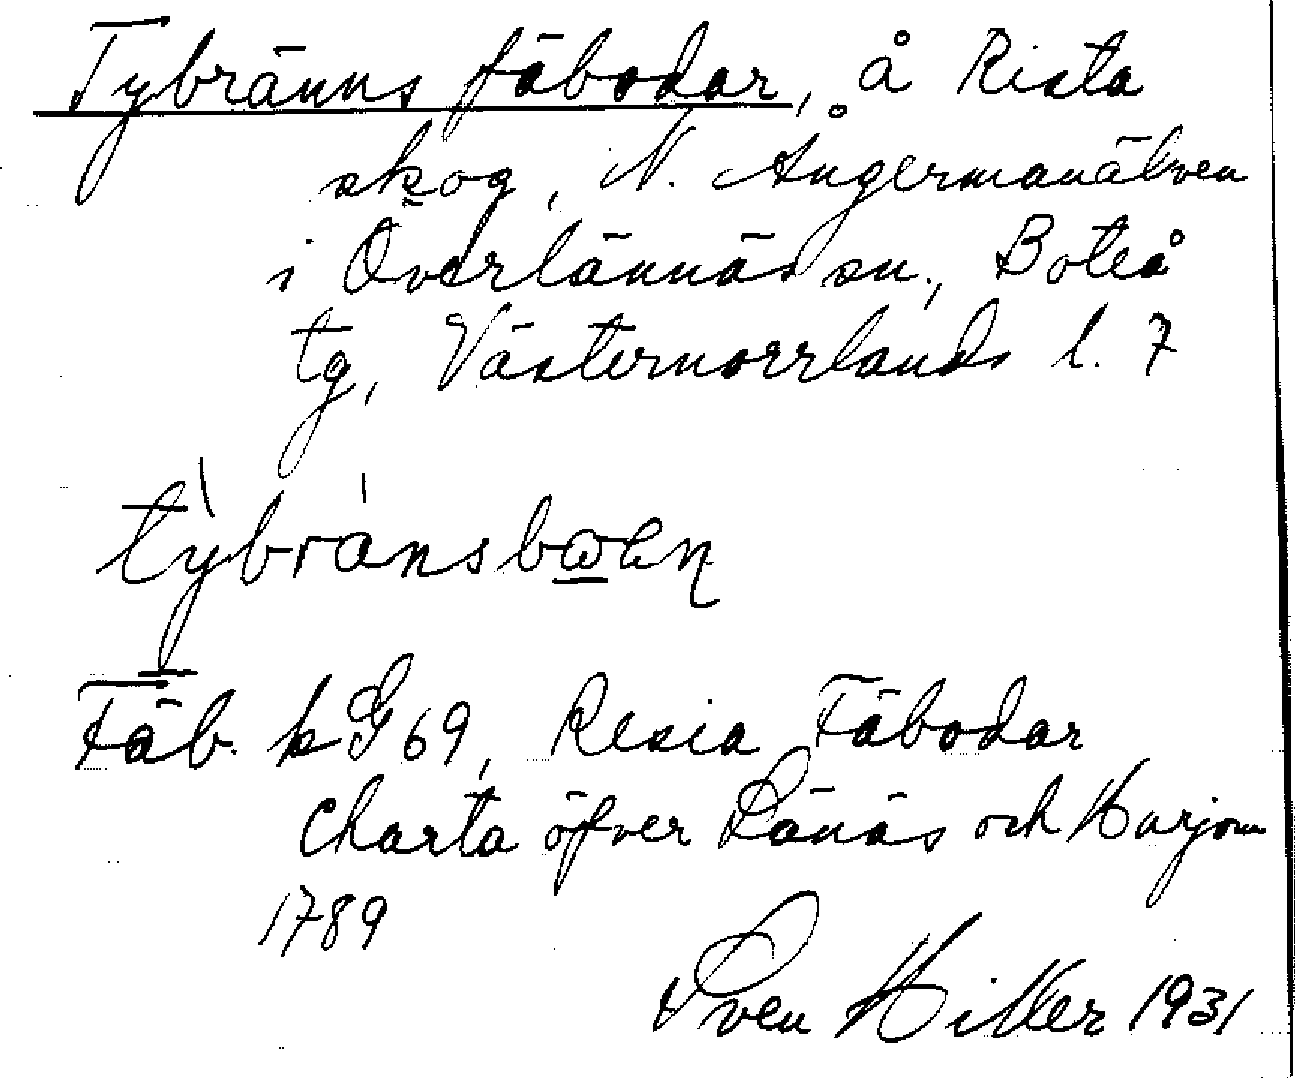 Tybränns fäbodar, å Rista
skog, N. Ångermanälven
i Överlännäs sn., Boteå
tg, Västernorrlands l. 7
tỳbránsbωen
Fäb. k G 69, Resia Fäbodar
Charta öfver Länäs och
1789
Sven Hiller 1931